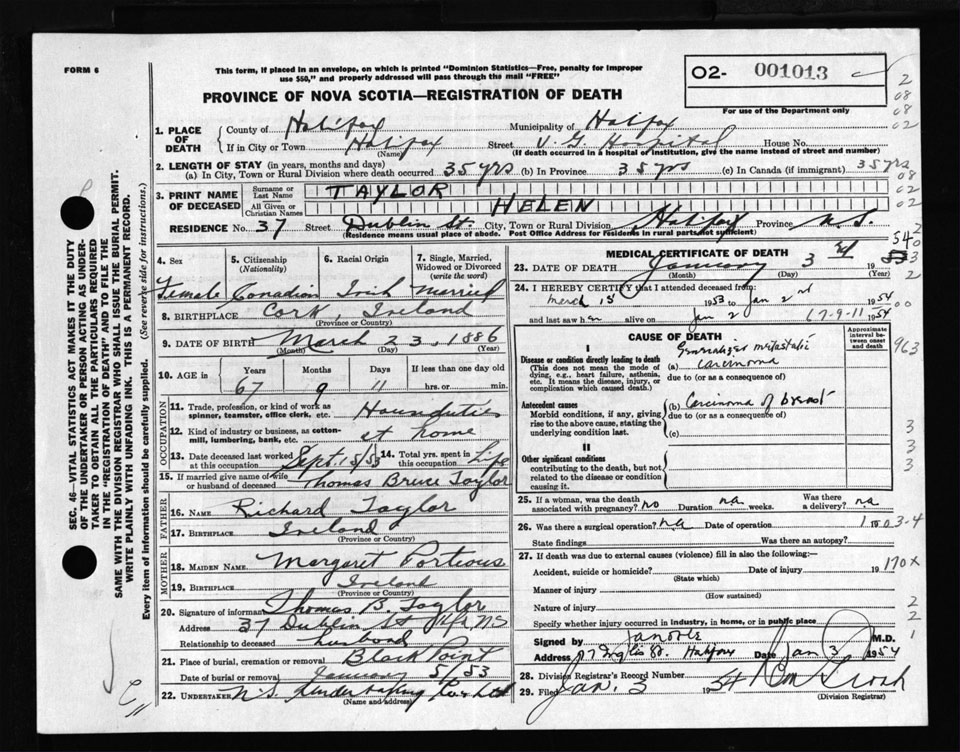 FORM 6
This form, if placed in an envelope, on which is printed "Dominion Statistics—Free, penalty for improper
use $50," and properly addressed will pass through the mail "FREE"
PROVINCE OF NOVA SCOTIA—REGISTRATION OF DEATH
O2- 001013
For use of the Department only
2
08
08
02
1. PLACE OF DEATH
County of Halifax Municipality of Halifax
If in City or Town Halifax Street V. G. Hospital House No.
(Name) (If death occurred in a hospital or institution, give the name instead of street and number)
2. LENGTH OF STAY (in years, months and days)
(a) In City, Town or Rural Division where death occurred 35 yrs (b) In Province 35 yrs (c) In Canada (if immigrant) 35 yrs
08
02
02
3. PRINT NAME OF DECEASED
Surname or Last Name TAYLOR
All Given or Christian Names HELEN
RESIDENCE No. 37 Street Dublin St. City, Town or Rural Division Halifax Province N.S.
(Residence means usual place of abode. Post Office Address for residents in rural parts not sufficient)
4. Sex Female
5. Citizenship (Nationality) Canadian
6. Racial Origin Irish
7. Single, Married, Widowed or Divorced (write the word) Married
8. BIRTHPLACE Cork, Ireland
(Province or Country)
9. DATE OF BIRTH March 23, 1886
(Month) (Day) (Year)
10. AGE in Years Months Days If less than one day old
67 9 11 hrs. or min.
OCCUPATION
11. Trade, profession, or kind of work as spinner, teamster, office clerk, etc. Housduties
12. Kind of industry or business, as cotton-mill, lumbering, bank, etc. at home
13. Date deceased last worked at this occupation Sept. 15/53 14. Total yrs. spent in this occupation Life
15. If married give name of wife or husband of deceased Thomas Bruce Taylor
FATHER
16. NAME Richard Taylor
17. BIRTHPLACE Ireland
(Province or Country)
MOTHER
18. MAIDEN NAME. Margaret Portious
19. BIRTHPLACE Ireland
(Province or Country)
20. Signature of informant Thomas B. Taylor
Address 37 Dublin St Hfx NS
Relationship to deceased husband
21. Place of burial, cremation or removal Black Point
Date of burial or removal January 5/53
22. UNDERTAKER N.S. Undertaking Co Ltd
(Name and address)
MEDICAL CERTIFICATE OF DEATH
23. DATE OF DEATH January 3rd 54
(Month) (Day) (Year)
24. I HEREBY CERTIFY that I attended deceased from:
March 1st 1953 to Jan 2nd 1954
and last saw her alive on Jan 2 1954
67-9-11
CAUSE OF DEATH
Approximate interval between onset and death
I
Disease or condition directly leading to death
(This does not mean the mode of dying, e.g., heart failure, asthenia, etc. It means the disease, injury, or complication which caused death.)
(a) Generalized metastatic carcinoma
due to (or as a consequence of)
963
Antecedent causes
Morbid conditions, if any, giving rise to the above cause, stating the underlying condition last.
(b) Carcinoma of breast
due to (or as a consequence of)
(c)
3
3
3
II
Other significant conditions
contributing to the death, but not related to the disease or condition causing it.
25. If a woman, was the death associated with pregnancy? no Duration na weeks. Was there a delivery? na
26. Was there a surgical operation? n.a Date of operation 19
State findings Was there an autopsy?
27. If death was due to external causes (violence) fill in also the following:—
Accident, suicide or homicide? Date of injury 19
170X
(State which)
Manner of injury
(How sustained)
Nature of injury
2
2
Specify whether injury occurred in industry, in home, or in public place
1
Signed by M.D.
Address Inglis St. Halifax Date Jan 3 1954
28. Division Registrar's Record Number
29. Filed Jan. 3 1954
(Division Registrar)
SEC. 46—VITAL STATISTICS ACT MAKES IT THE DUTY
OF THE UNDERTAKER OR PERSON ACTING AS UNDER-
TAKER TO OBTAIN ALL THE PARTICULARS REQUIRED
IN THE "REGISTRATION OF DEATH" AND TO FILE THE
SAME WITH THE DIVISION REGISTRAR WHO SHALL ISSUE THE BURIAL PERMIT.
WRITE PLAINLY WITH UNFADING INK. THIS IS A PERMANENT RECORD.
Every item of information should be carefully supplied. (See reverse side for instructions.)